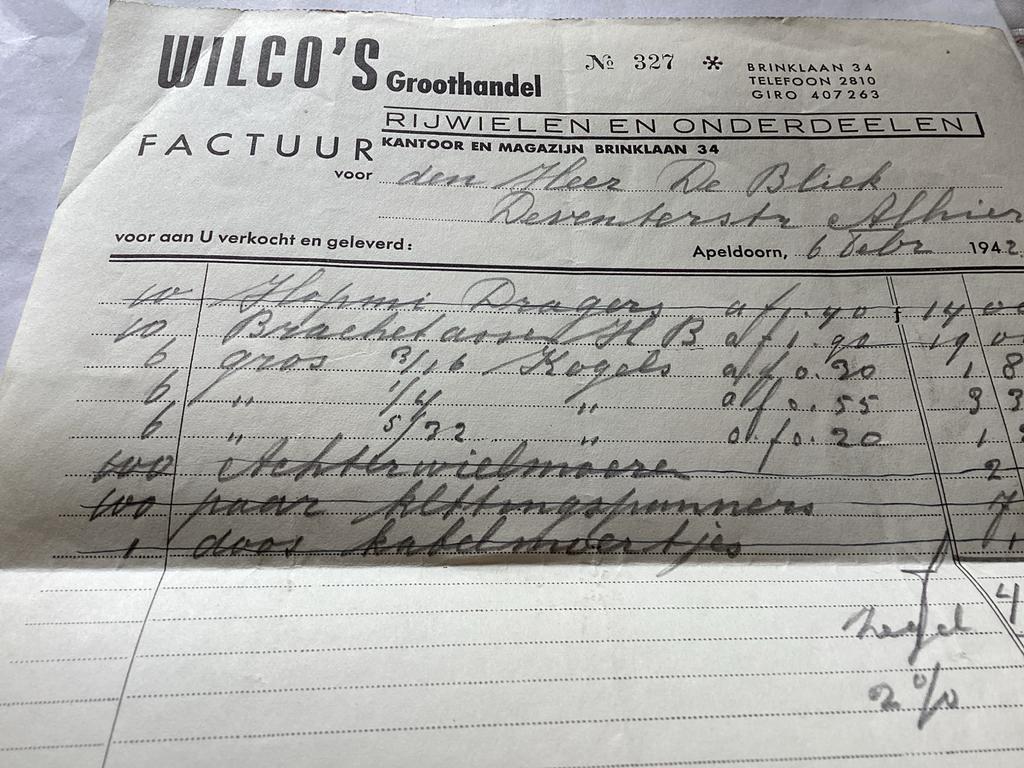 WILCO'S Groothandel № 327 * BRINKLAAN 34
TELEFOON 2810
GIRO 407263
RIJWIELEN EN ONDERDEELEN
FACTUUR KANTOOR EN MAGAZIJN BRINKLAAN 34
voor den Heer De Bliek
Deventerstr Alhier
voor aan U verkocht en geleverd: Apeldoorn, 6 Febr 1942.
10 Hopmi Dragers a f 1.40 f 14 00
10 H B a f 1.90 19 0
6 gros 3/16 Kogels a f 0.30 1 8
6 " 1/4 " a f 0.55 3 3
6 " 5/32 " a f 0.20 1
100 Achterwielmoere 2
100 paar kettingspanners 7
1 doos kabelmoertjes 1
4
zegel
2 %